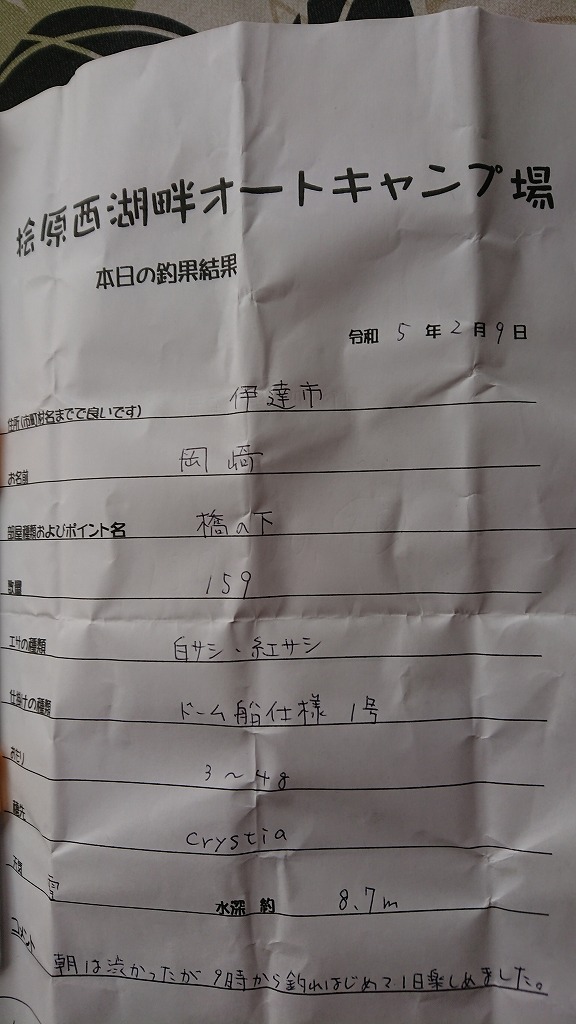 桧原西湖畔オートキャンプ場
本日の釣果結果
令和 5 年 2 月 9 日
住所(市町村名までで良いです) 伊達市
お名前 岡﨑
部屋種類およびポイント名 橋の下
数量 159
エサの種類 白サシ・紅サシ
仕掛けの種類 ドーム船仕様 1号
おもり 3〜4g
穂先 crystia
天気 雪 水深 約 8.7m
コメント 朝は渋かったが9時から釣れはじめて1日楽しめました。